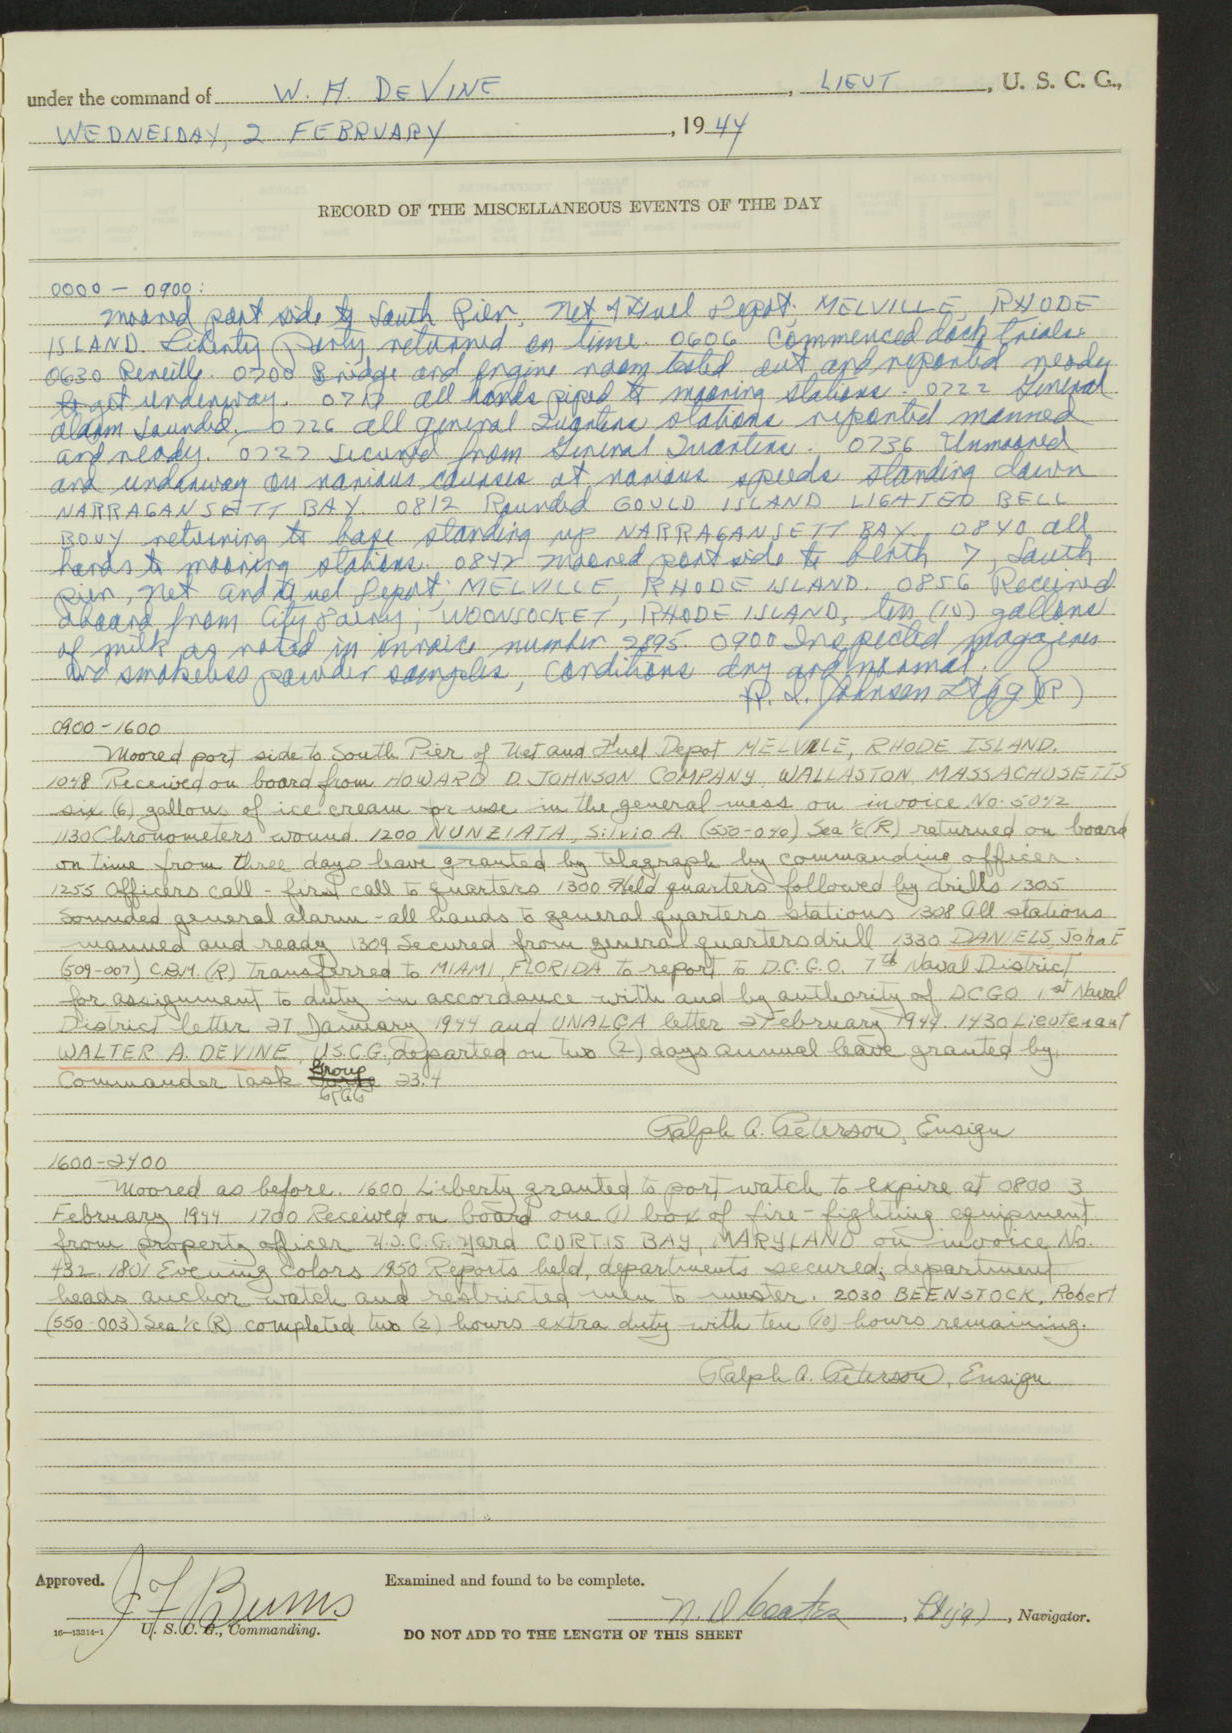 under the command of W. H. DEVINE, LIEUT, U. S. C. G.,
WEDNESDAY, 2 FEBRUARY, 1944
RECORD OF THE MISCELLANEOUS EVENTS OF THE DAY
0000 - 0900:
Moored port side to South Pier, Net & Fuel Depot, MELVILLE, RHODE
ISLAND. Liberty party returned on time. 0606 Commenced dock trials.
0630 Reveille. 0700 Bridge and engine room tested out and reported ready
to get underway. 0717 all hands piped to mooring stations. 0722 General
alarm sounded, 0726 all general Quarters stations reported manned
and ready. 0727 Secured from General Quarters. 0736 Unmoored
and underway on various courses at various speeds standing down
NARRAGANSETT BAY. 0812 Rounded GOULD ISLAND LIGHTED BELL
BOUY returning to base standing up NARRAGANSETT BAY. 0840 all
hands to mooring stations. 0842 Moored port side to berth 7, South
pier, Net and Fuel Depot, MELVILLE, RHODE ISLAND. 0856 Received
aboard from City Dairy, WOONSOCKET, RHODE ISLAND, ten (10) gallons
of milk as noted in invoice number 2895. 0900 Inspected magazines
and smokeless powder samples, conditions dry and normal.
R. L. Johnson Lt (jg) (R)
0900-1600
Moored port side to South Pier of Net and Fuel Depot MELVILLE, RHODE ISLAND.
1048 Received on board from HOWARD D. JOHNSON COMPANY, WALLASTON, MASSACHUSETTS
six (6) gallons of ice cream for use in the general mess on invoice No. 5042
1130 Chronometers wound. 1200 NUNZIATA, Silvio A. (550-040) Sea 1/c (R) returned on board
on time from three days leave granted by telegraph by commanding officer.
1255 Officers call - first call to quarters 1300 Held quarters followed by drills 1305
Sounded general alarm - all hands to general quarters stations 1308 All stations
manned and ready 1309 Secured from general quarters drill 1330 DANIELS, John E
(509-007) C.B.M. (R) transferred to MIAMI, FLORIDA to report to D.C.G.O. 7th Naval District
for assignment to duty in accordance with and by authority of DCGO 1st Naval
District letter 27 January 1944 and UNALGA letter 2 February 1944. 1430 Lieutenant
WALTER A. DEVINE, U.S.C.G., departed on two (2) days annual leave granted by
Commander Task Group 23.4
Ralph A. Peterson, Ensign
1600-2400
Moored as before. 1600 Liberty granted to port watch to expire at 0800 3
February 1944 1700 Received on board one (1) box of fire-fighting equipment
from property officer U.S.C.G. Yard CURTIS BAY, MARYLAND on invoice No.
432. 1801 Evening Colors 1950 Reports held, departments secured; department
heads anchor watch and restricted men to muster. 2030 BEENSTOCK, Robert
(550-003) Sea 1/c (R) completed two (2) hours extra duty with ten (10) hours remaining.
Ralph A. Peterson, Ensign
Approved. Examined and found to be complete.
J F Burns Lt(jg), Navigator.
16-13314-1 U. S. C. G., Commanding. DO NOT ADD TO THE LENGTH OF THIS SHEET